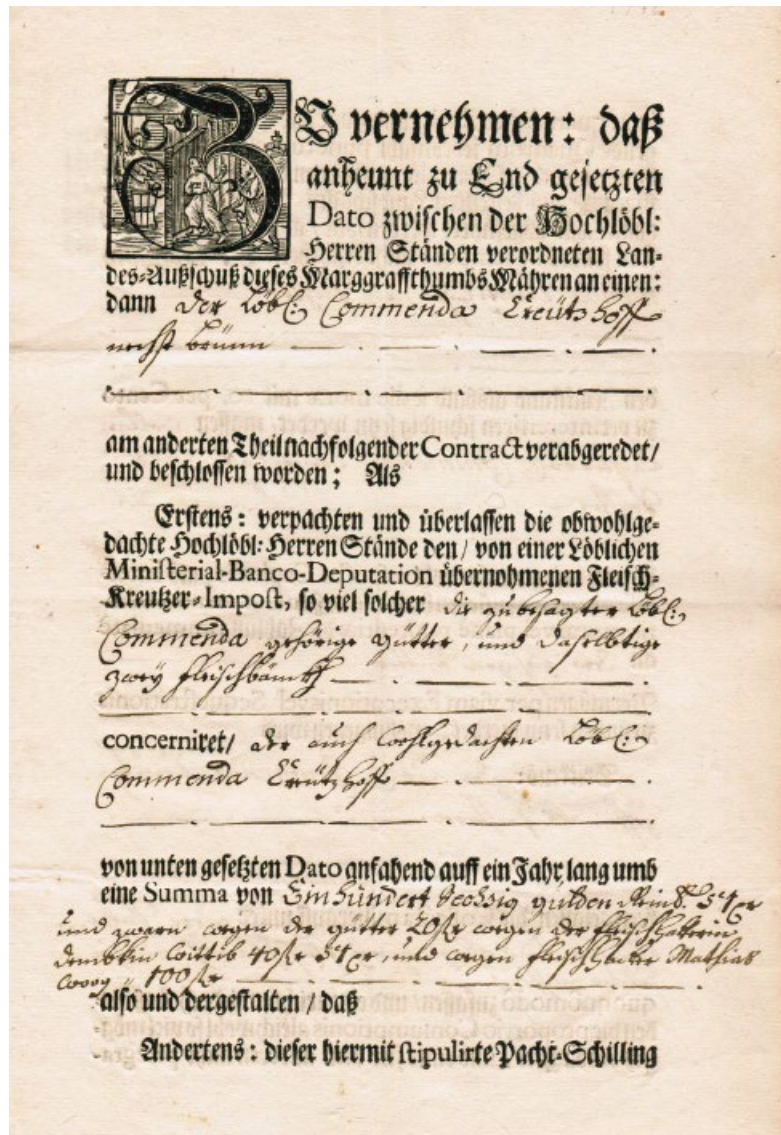 ZU vernehmen: daß
anheunt zu End gesetzten
Dato zwischen der Hochlöbl:
Herren Ständen verordneten Lan-
des-Außschuß dieses Marggraffthumbs Mähren an einen:
dann der Löbl: Commenda Creützhoff
nechst brünn
am anderten Theil nachfolgender Contract verabgeredet/
und beschlossen worden; Als
Erstens: verpachten und überlassen die obwohlge-
dachte Hochlöbl: Herren Stände den/ von einer Löblichen
Ministerial-Banco-Deputation übernohmenen Fleisch-
Kreutzer-Impost, so viel solcher die zu besagter Löbl:
Commenda gehörige gütter, und daselbstige
zwey fleischbänckh
concerniret/ der auch wohlgedachten Löbl:
Commenda Creützhoff
von unten gesetzten Dato anfahend auff ein Jahr lang umb
eine Summa von Einhundert Sechzig gulden Reinl. 54 xr
und zwarn wegen der gütter 20 fl wegen der fleischhakerin
Wittib 40 fl 54 xr, und wegen fleischhaker Mathias
100 fl
also und dergestalten/ daß
Andertens: dieser hiermit stipulirte Pacht-Schilling